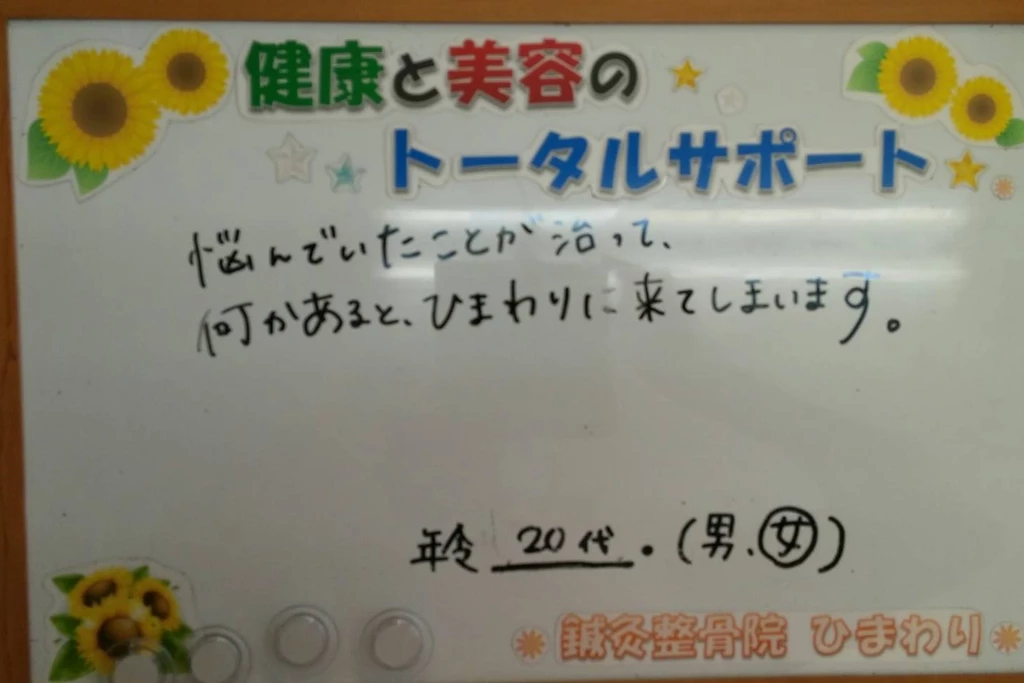 健康と美容の
トータルサポート
悩んでいたことが治って、
何かあると、ひまわりに来てしまいます。
年令 20代.(男、女)
鍼灸整骨院 ひまわり